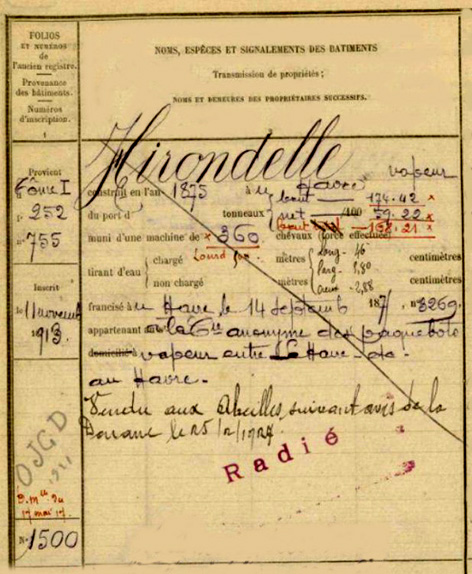 FOLIOS
ET NUMÉROS
de
l'ancien registre.
Provenance
des bâtiments.
Numéros
d'inscription.
1
NOMS, ESPÈCES ET SIGNALEMENTS DES BATIMENTS
Transmission de propriétés;
NOMS ET DEMEURES DES PROPRIÉTAIRES SUCCESSIFS.
Hirondelle
vapeur
Provient
Tôme I
f° 252
n° 755
construit en l'an 1875 à
brut 174.42 x
du port d tonneaux net /100 59.22 x
muni d'une machine de x 360 chevaux (force effectuée)
tirant d'eau
chargé mètres centimètres
non chargé mètres centimètres
long. 46
Larg. 5,80
creux 2,88
Inscrit
le 11 novemb
1913.
francisé au Havre le 14 septemb 187 n° 3269
appartenant à la Cie anonyme des paquebots
domicilié à vapeur entre Le Havre
au Havre.
Vendu aux Abeilles, suivant avis de la
Douane le 25/2/1927
Radié
OJGD
D. mlle du
17 mai 17.
N° 1500